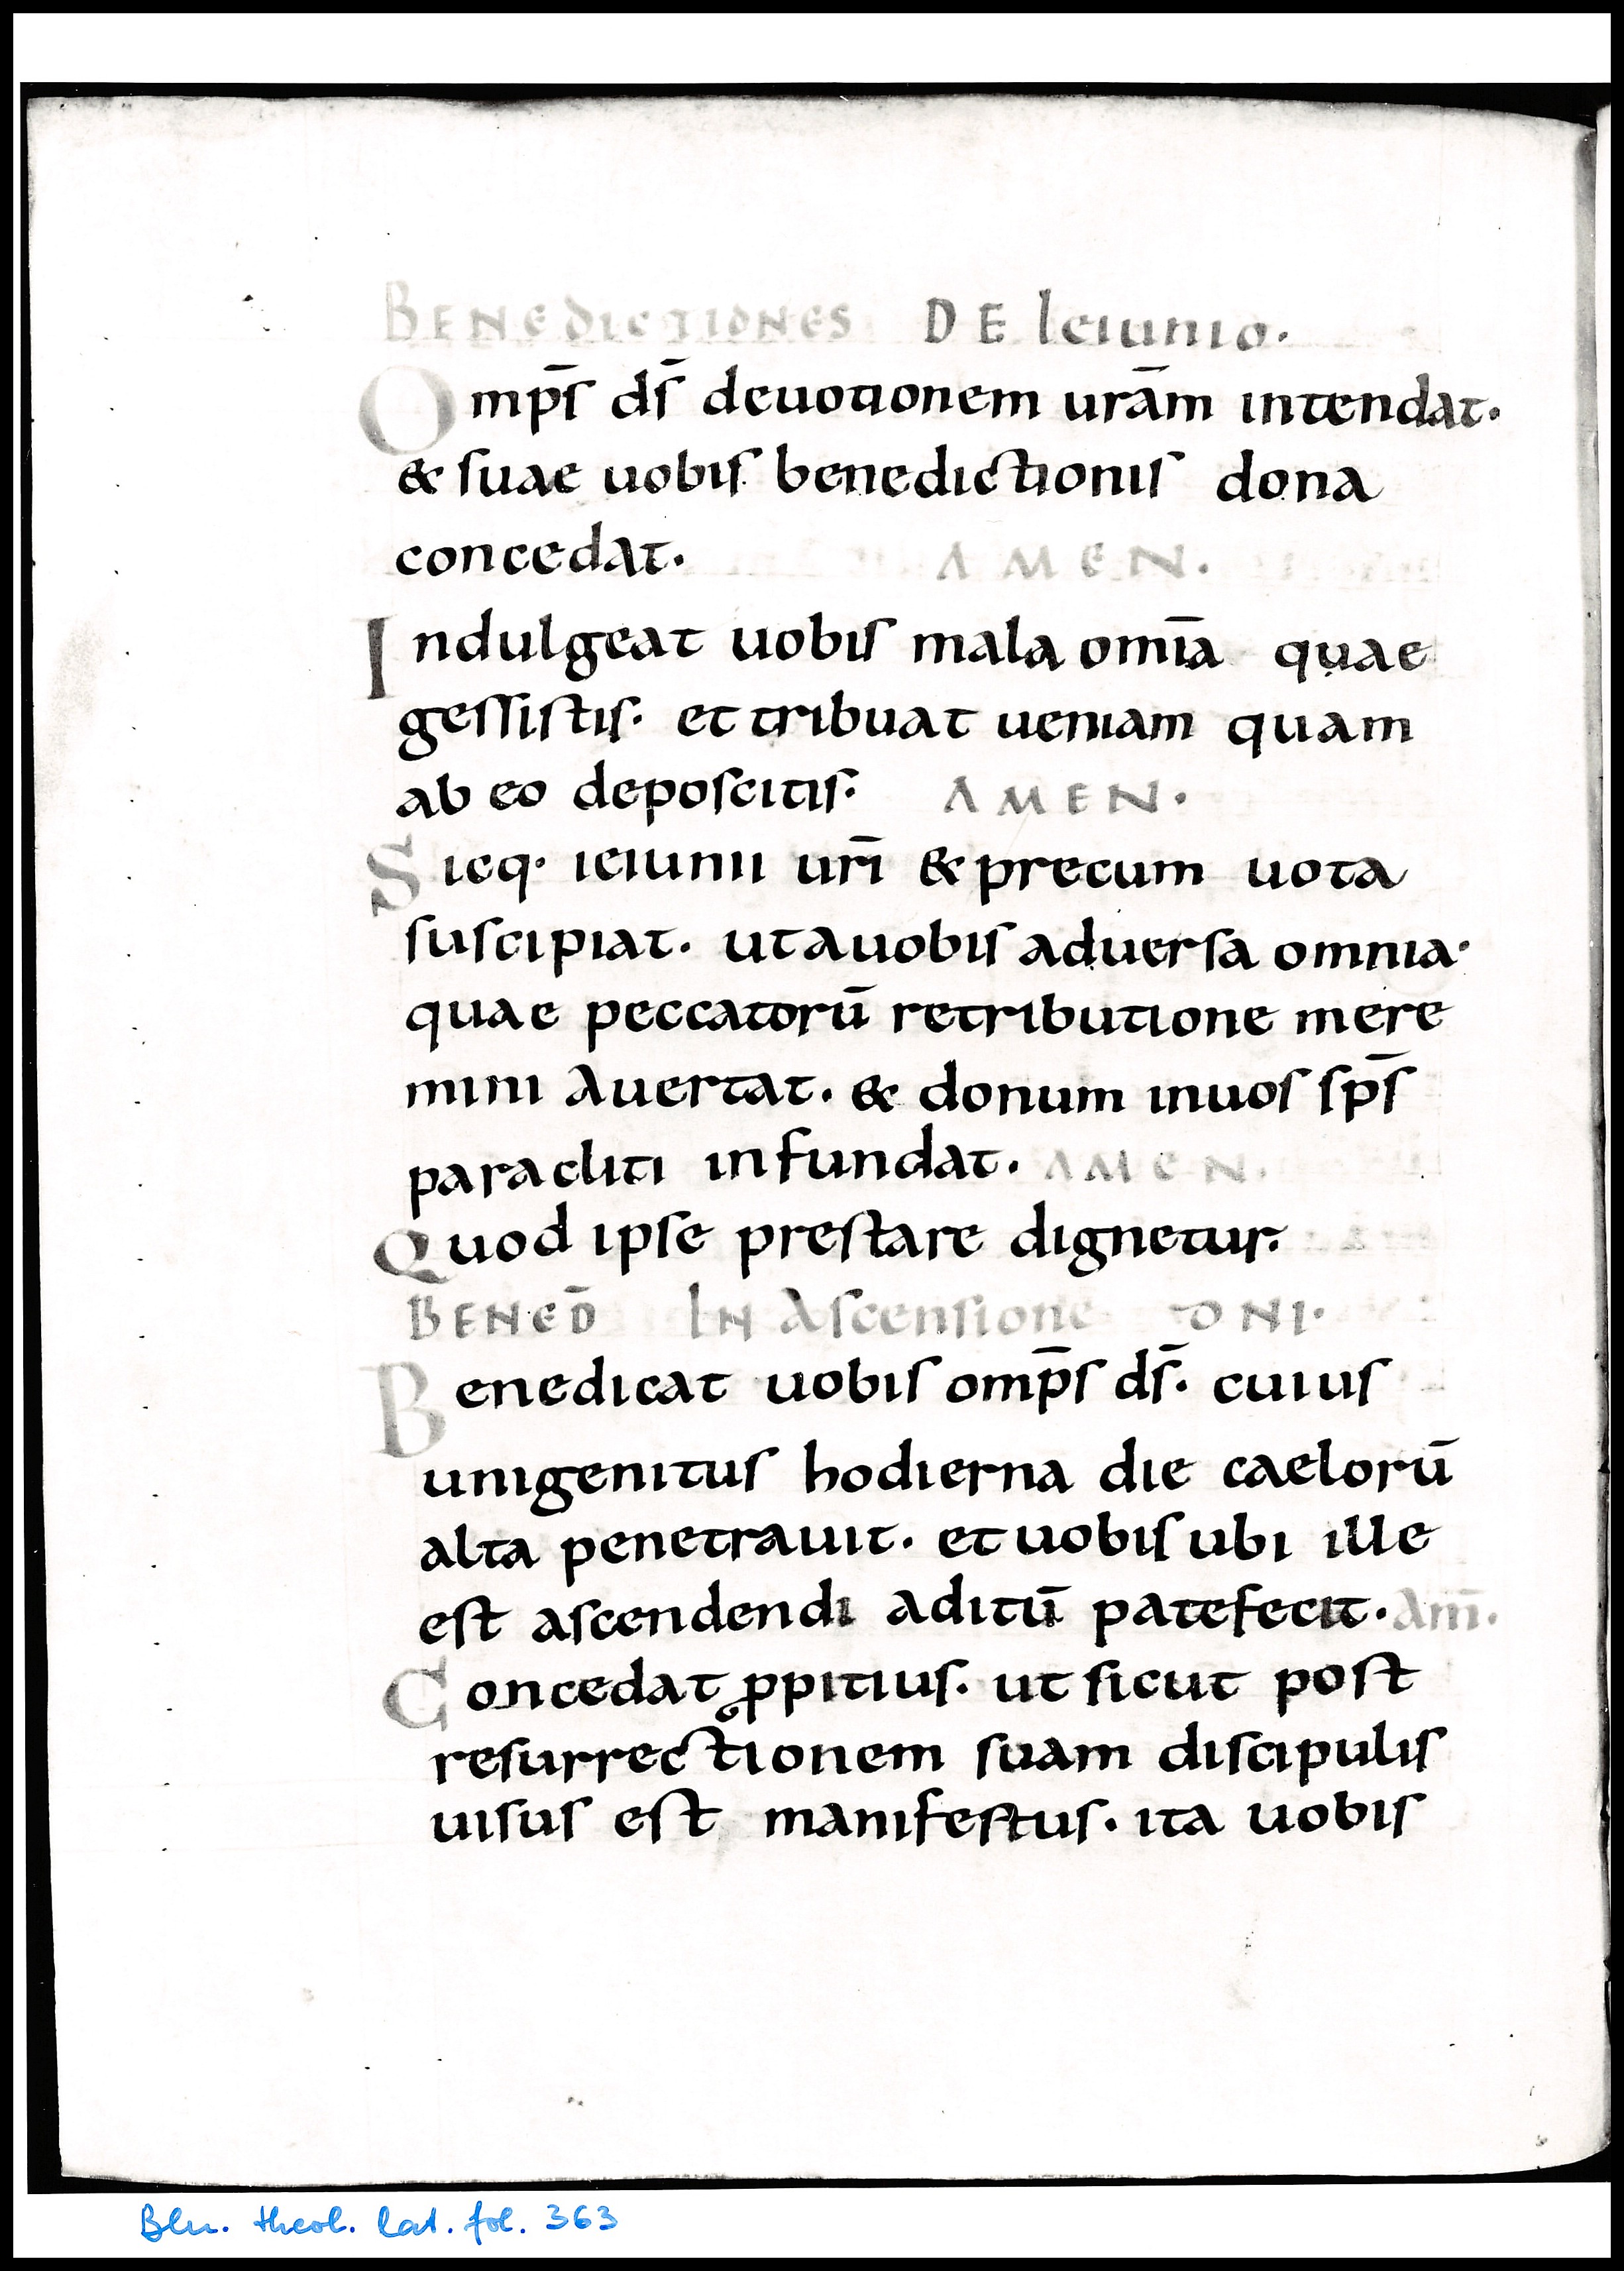 BENEDICTIONES DE Ieiunio.
Omp̄s ds̄ deuotionem urām intendat.
& suae uobis benedictionis dona
concedat. AMEN.
Indulgeat uobis mala omīa quae
gessistis. et tribuat ueniam quam
ab eo deposcitis. AMEN.
Sicq. ieiunii urī & precum uota
suscipiat. ut a uobis aduersa omnia.
quae peccatorū retributione mere
mini auertat. & donum in uos sp̄s
paracliti infundat. AMEN.
Quod ipse prestare dignetur.
BENED̄ IN Ascensione DNI.
Benedicat uobis omp̄s ds̄. cuius
unigenitus hodierna die caelorū
alta penetrauit. et uobis ubi ille
est ascendendi aditū patefecit. am̄.
Concedat ꝓpitius. ut sicut post
resurrectionem suam discipulis
uisus est manifestus. ita uobis
Bln. theol. lat. fol. 363